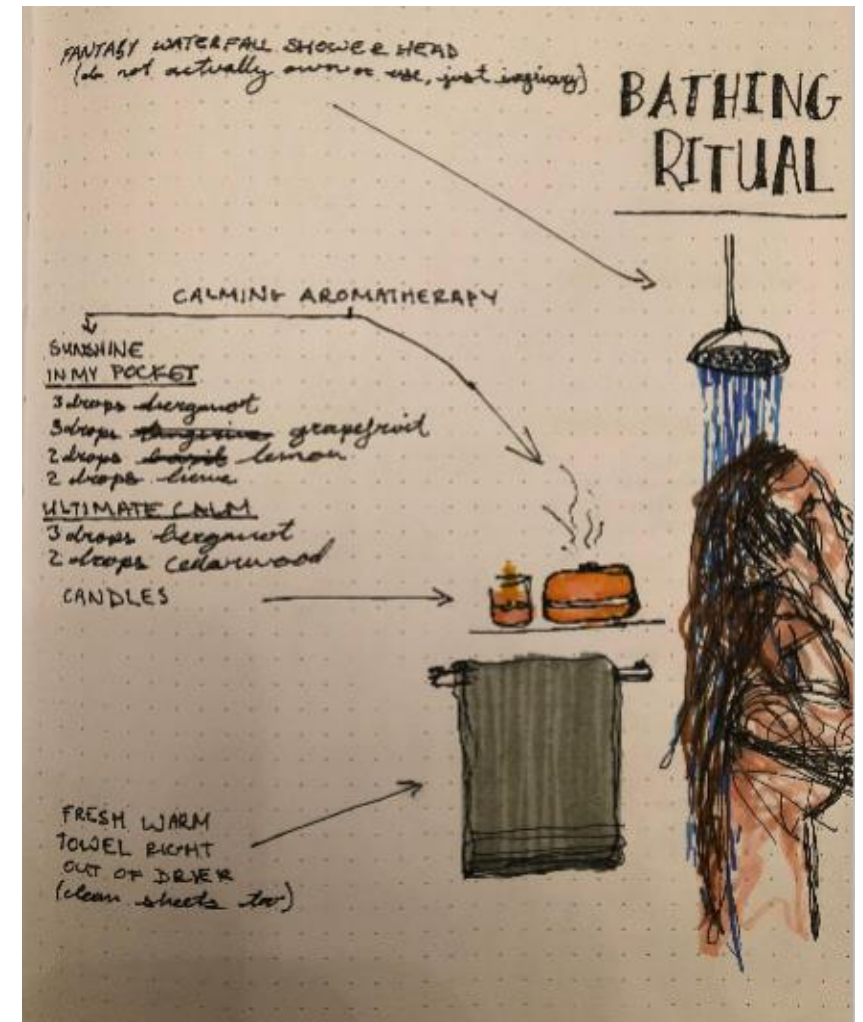 FANTASY WATERFALL SHOWER HEAD
(do not actually own or use, just imaginary)
BATHING
RITUAL
CALMING AROMATHERAPY
SUNSHINE
IN MY POCKET
3 drops bergamot
3 drops tangerine grapefruit
2 drops basil lemon
2 drops lime
ULTIMATE CALM
3 drops bergamot
2 drops cedarwood
CANDLES
FRESH WARM
TOWEL RIGHT
OUT OF DRYER
(clean sheets too)